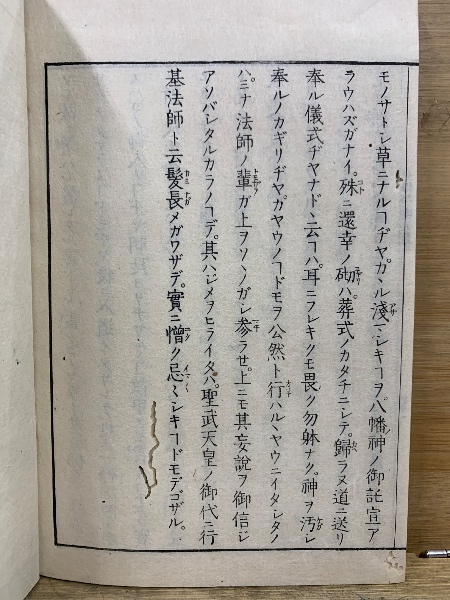 モノサトシ草ニナルヿヂヤ。カヽル淺マシキヿヲ。八幡神ノ御託宣ア
ラウハズガナイ。殊ニ還幸ノ砌ハ。葬式ノカタチニシテ。歸ラヌ道ニ送リ
奉ル儀式ヂヤナドヽ云フハ。耳ニフレキクモ畏ク勿躰ナク。神ヲ汚シ
奉ルノカギリヂヤ。カヤウノヿドモヲ公然ト行ハルヽヤウニイタシタノ
ハ。ミナ法師ノ輩ガ上ヲソヽノカシ参ラせ。上ニモ其妄説ヲ御信ジ
アソバシタルカラノヿデ。其ハジメヲヒライタハ。聖武天皇ノ御代ニ行
基法師ト云髪長メガワザデ。實ニ憎ク忌〻シキヿドモデゴザル。